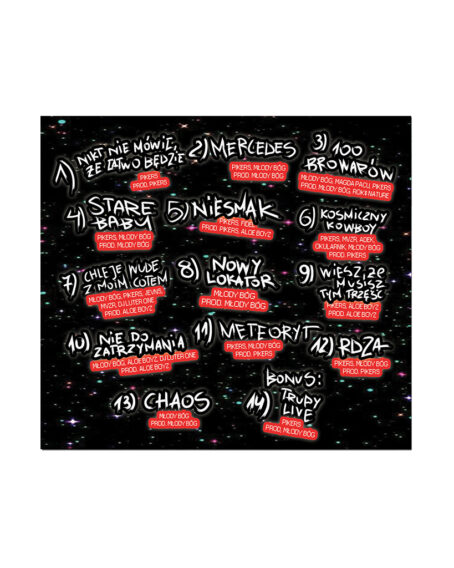 1) NIKT NIE MÓWIŁ,
ŻE ŁATWO BĘDZIE
PIKERS
PROD. PIKERS
2) MERCEDES
PIKERS, MŁODY BÓG
PROD. MŁODY BÓG
3) 100
BROWARÓW
MŁODY BÓG, MAGDA PACU, PIKERS
PROD. MŁODY BÓG,
4) STARE
BABY
PIKERS, MŁODY BÓG
PROD. MŁODY BÓG
5) NIESMAK
PIKERS, FIDEL
PROD. PIKERS, ALOE BOYZ
6) KOSMICZNY
KOWBOY
PIKERS, MVZR, ADEK,
OKULARNIK, MŁODY BÓG
PROD. PIKERS
7) CHLEJĘ WÓDĘ
Z MOIM COTEM
MŁODY BÓG, PIKERS, JEVNS,
MVZR, DJ LUTER ONE
PROD. ALOE BOYZ
8) NOWY
LOKATOR
MŁODY BÓG
PROD. MŁODY BÓG
9) WIESZ, ŻE
MUSISZ
TYM TRZEŚĆ
PIKERS, ALOE BOYZ
PROD. ALOE BOYZ
10) NIE DO
ZATRZYMANIA
MŁODY BÓG, ALOE BOYZ, DJ LUTER ONE
PROD. ALOE BOYZ
11) METEORYT
PIKERS, MŁODY BÓG
PROD. PIKERS
12) RDZA
PIKERS, MŁODY BÓG
PROD. PIKERS
13) CHAOS
MŁODY BÓG
PROD. MŁODY BÓG
BONUS:
14) TRUDY
LIVE
PIKERS
PROD. MŁODY BÓG